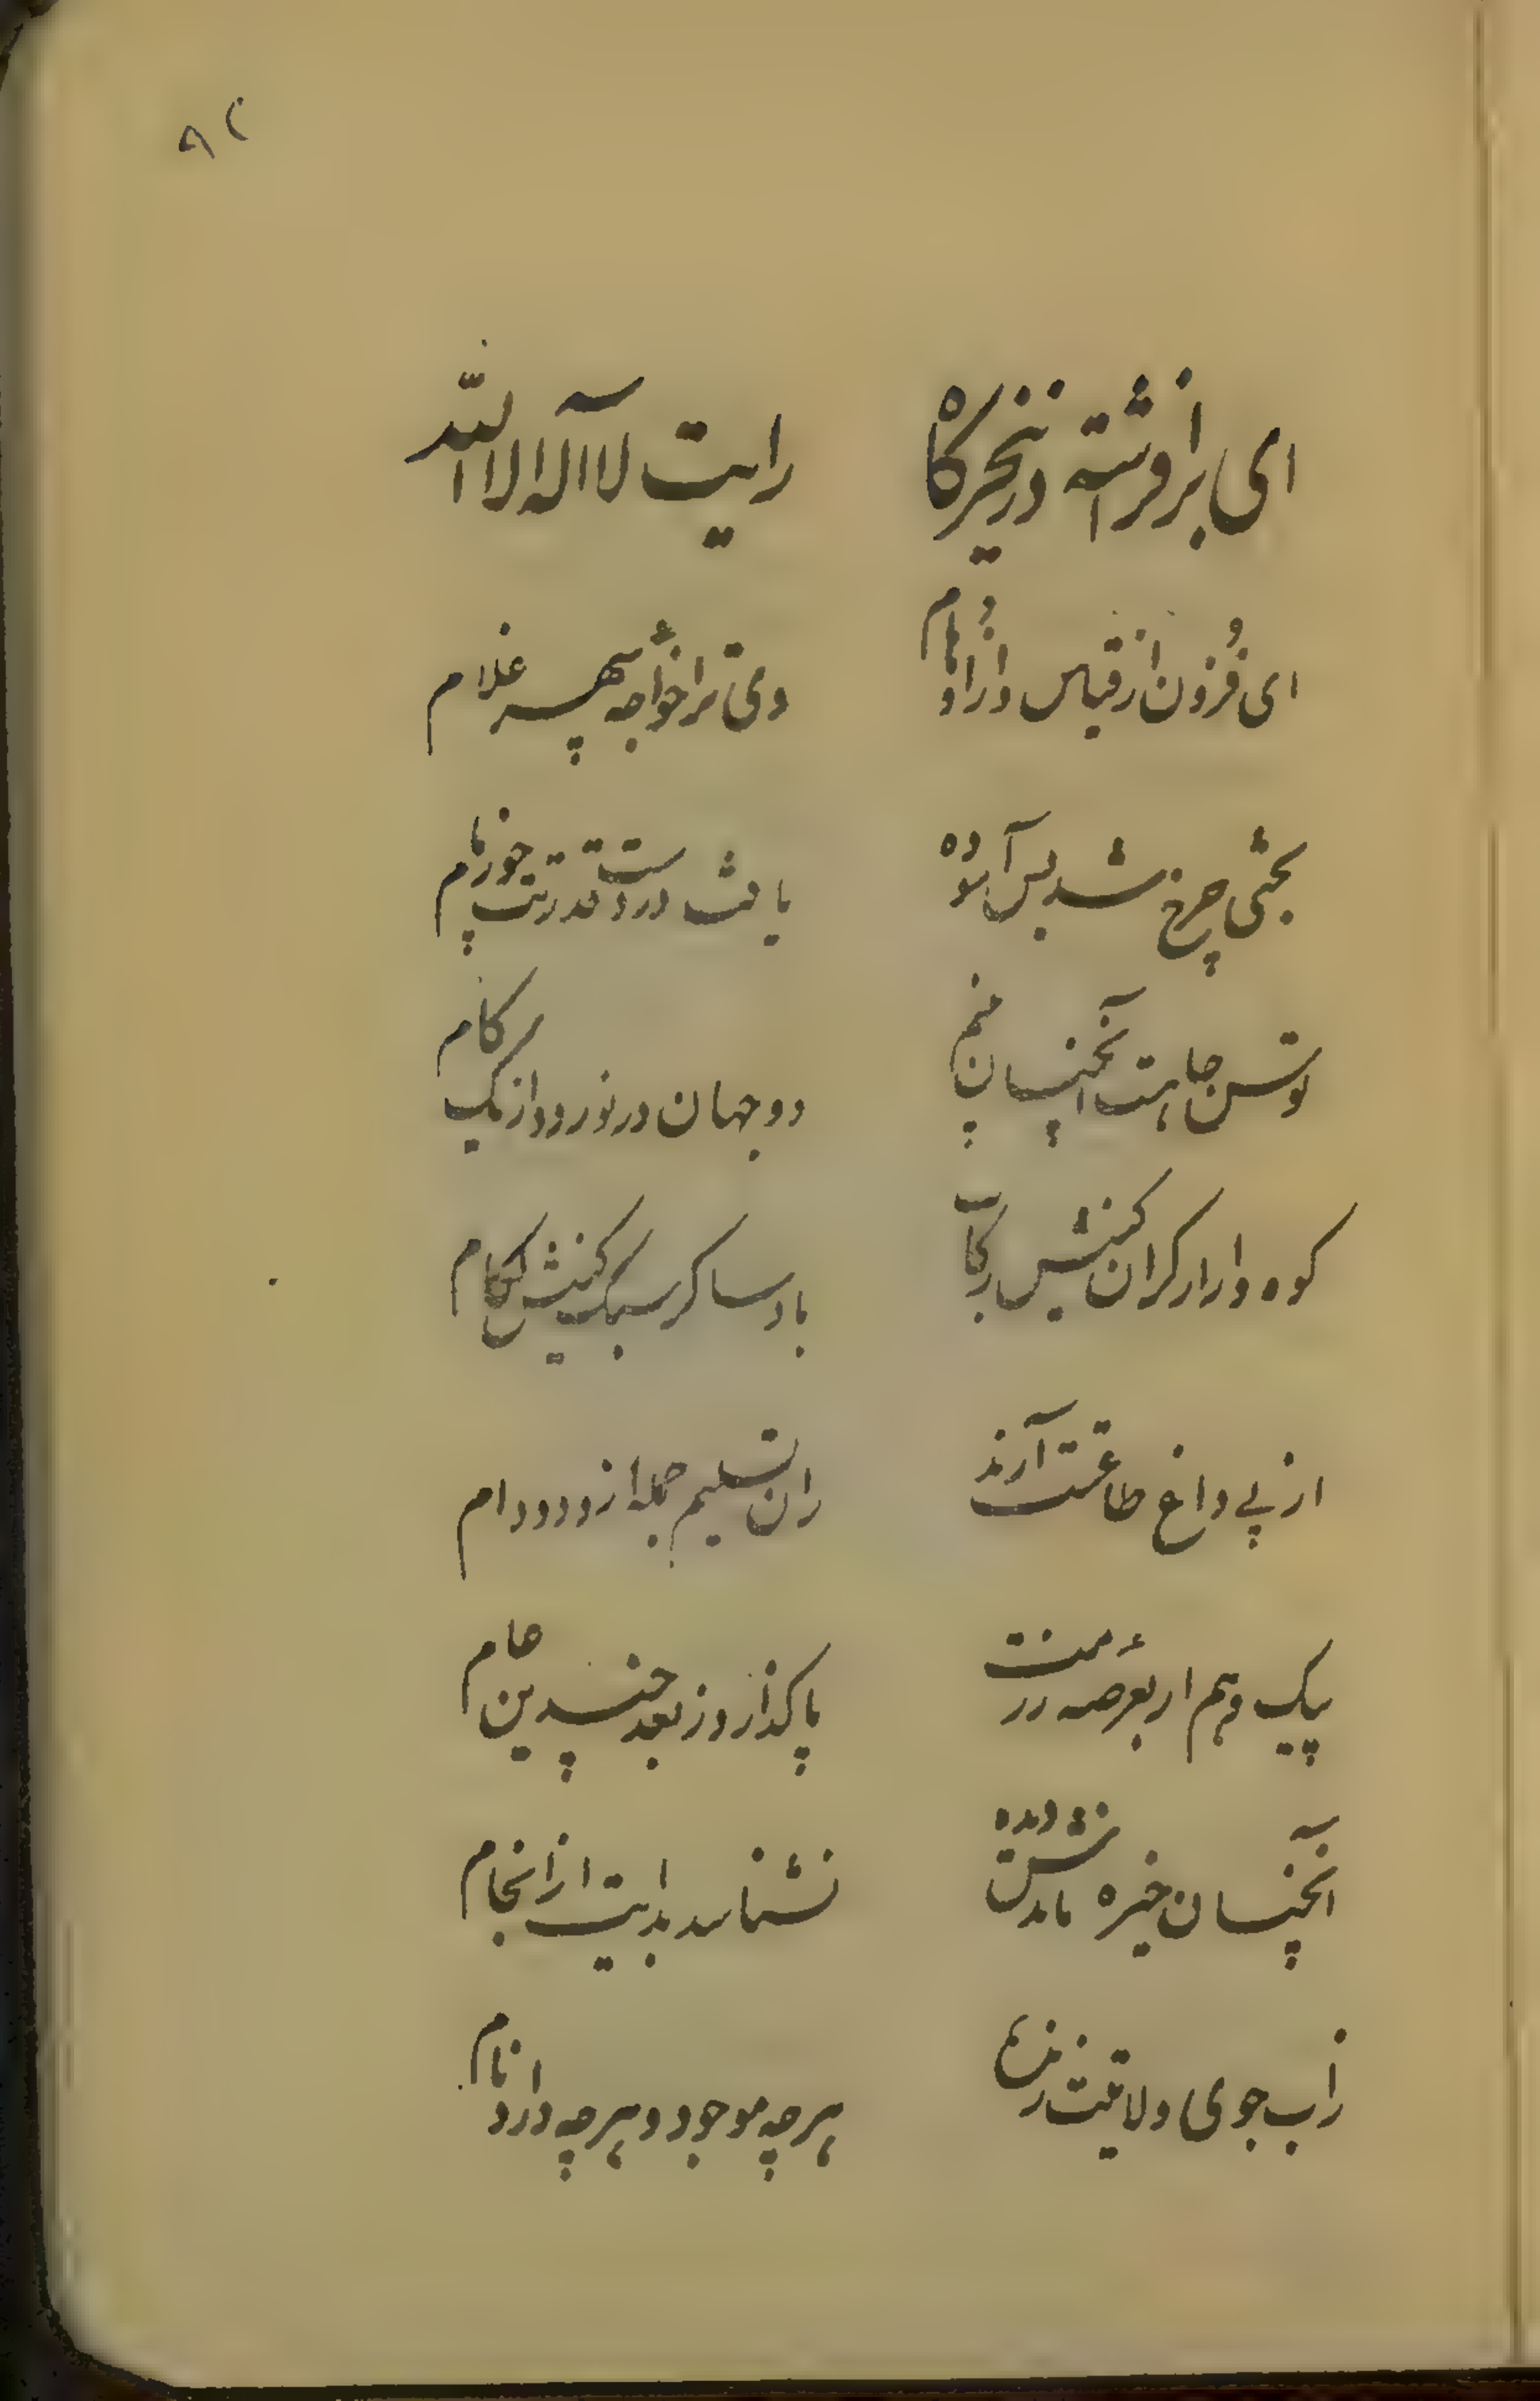 ۹۲
ای برافراشته در نخجیرگاه رایت لا اله الا الله
ای فزون از قیاس و از اوهام وی ترا خواجهٔ سپهر غلام
بختی چرخ شد بس آسوده یافت در دست قدرتت چو زمام
توسن جاهت آنچنان پنجم دو جهان در نوردد از یک کام
کوه وار ار کران کنیش رکاب باد سا کر سبک کنیش لکام
از پی داغ طاعتت آرند ران تسلیم جمله از دد و دام
پیک وهم ار بعرصهٔ زمنت پا کذارد ز بعد چندین عام
آنچنان خیره ماندش دیده نشناسد بدایت از انجام
زاب جوی ولایتت زنده هرچه موجود و هرچه دارد نام